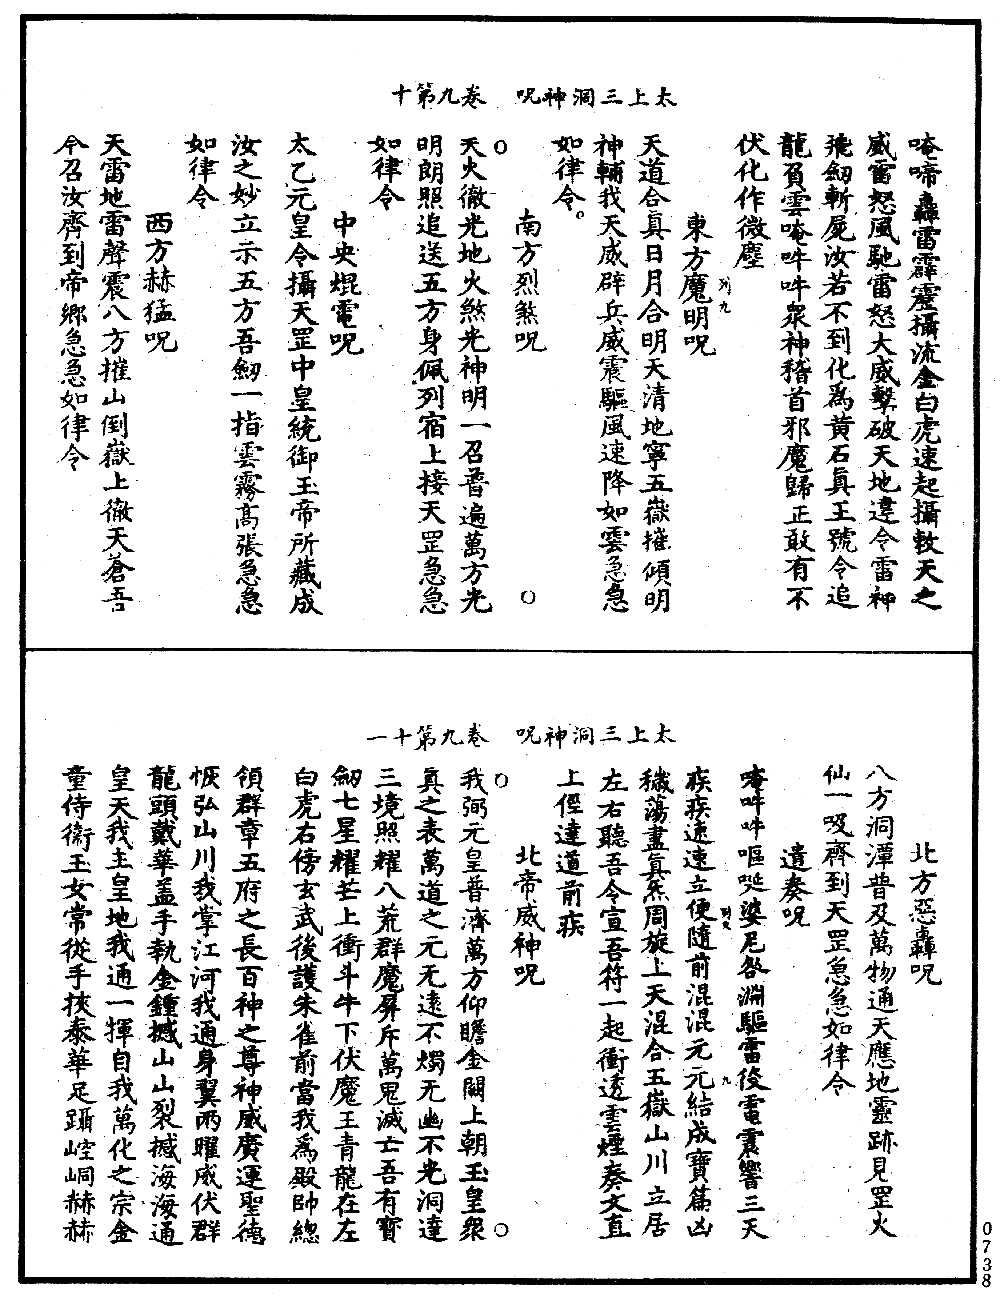 太上三洞神呪　卷九第十
唵啼轟雷霹靂攝流金白虎速起攝敕天之
威雷怒風馳雷怒大威擊破天地違令雷神
飛劒斬屍汝若不到化為黃石真王號令追
龍負雲唵吽吽眾神稽首邪魔歸正敢有不
伏化作微塵
東方魔明呪
天道合真日月合明天清地寧五嶽摧傾明
神輔我天威辟兵威震驅風速降如雲急急
如律令。
南方烈煞呪
天火徹光地火煞光神明一召普遍萬方光
明朗照追送五方身佩列宿上接天罡急急
如律令
中央焜電呪
太乙元皇令攝天罡中皇統御玉帝所藏成
汝之妙立示五方吾劒一指雲霧高張急急
如律令
西方赫猛呪
天雷地雷聲震八方摧山倒嶽上徹天蒼吾
今召汝齊到帝鄉急急如律令
太上三洞神呪　卷九第十一
北方惡轟呪
八方洞潭普及萬物通天應地靈跡見罡火
仙一吸齊到天罡急急如律令
遣奏呪
唵吽吽嘔㗭婆尼咎淵驅雷役電震響三天
疾疾速速立便隨前混混元元結成寶篇凶
穢蕩盡真炁周旋上天混合五嶽山川立居
左右聽吾令宣吾符一起衝透雲煙奏文直
上徑達道前疾
北帝威神呪
我弼元皇普濟萬方仰瞻金闕上朝玉皇眾
真之表萬道之元无遠不燭无幽不光洞達
三境照耀八荒群魔屏斥萬鬼滅亡吾有寶
劒七星耀芒上衝斗牛下伏魔王青龍在左
白虎右傍玄武後護朱雀前當我為殿帥總
領群章五府之長百神之尊神威廣運聖德
恢弘山川我掌江河我通身翼兩曜威伏群
龍頭戴華蓋手執金鍾撼山山裂撼海海通
皇天我主皇地我通一揮自我萬化之宗金
童侍衛玉女常從手挾泰華足躡崆峒赫赫
0738